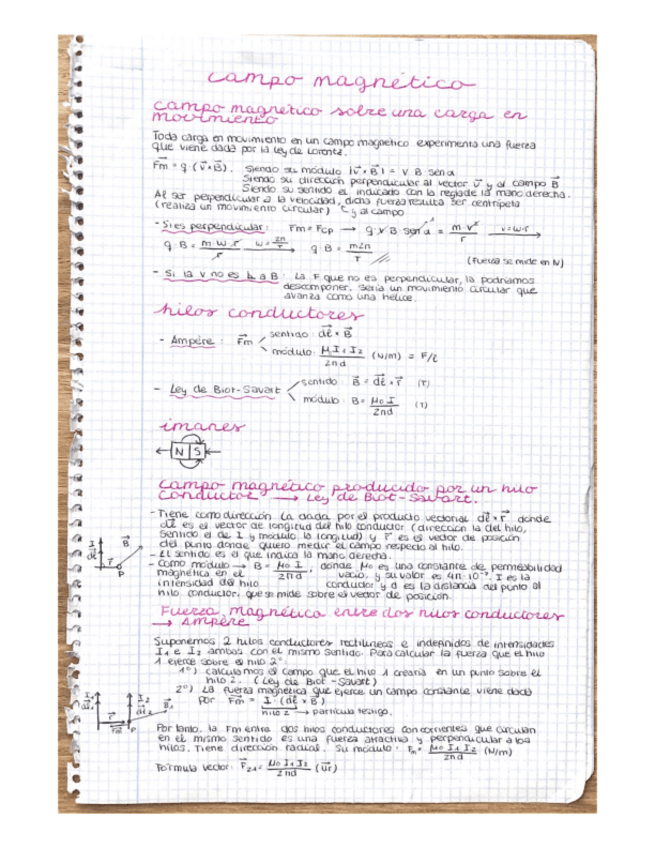 campo magnético
campo magnético sobre una carga en
movimiento
Toda carga en movimiento en un campo magnetico experimenta una fuerza
que viene dada por la ley de Lorentz.
Fm = q · (v × B). Siendo su módulo |v × B| = v B sen α
Siendo su dirección perpendicular al vector v y al campo B
Siendo su sentido el indicado con la regla de la mano derecha.
Al ser perpendicular a la velocidad, dicha fuerza resulta ser centrípeta
(realiza un movimiento circular) y al campo
- Si es perpendicular: Fm = Fcp → q · v B · sen α = m · v² / r v = w · r
q · B = m · w · r / r w = 2π / T q · B = m2π / T
(Fuerza se mide en N)
- Si la v no es ⊥ a B: La F que no es perpendicular, la podríamos
descomponer, sería un movimiento circular que
avanza como una hélice.
hilos conductores
- Ampère: Fm sentido: dl × B
módulo: μ I1 I2 / 2πd (N/m) = F/l
- Ley de Biot-Savart sentido: B = dl × r (T)
módulo: B = μ0 I / 2πd (T)
imanes
N S
campo magnético producido por un hilo
conductor → Ley de Biot-Savart.
- Tiene como dirección la dada por el producto vectorial dl × r donde
dl es el vector de longitud del hilo conductor (dirección la del hilo,
sentido el de I y módulo la longitud) y r es el vector de posición
del punto donde quiero medir el campo respecto al hilo.
I B dl r P
- El sentido es el que indica la mano derecha.
- Como módulo → B = μ0 I / 2πd, donde μ0 es una constante de permeabilidad
magnética en el vacío, y su valor es 4π · 10⁻⁷, I es la
intensidad del hilo conductor y d es la distancia del punto al
hilo conductor, que se mide sobre el vector de posición.
Fuerza magnética entre dos hilos conductores
→ Ampère
Suponemos 2 hilos conductores rectilíneos e indefinidos de intensidades
I1 e I2 ambos con el mismo sentido. Para calcular la fuerza que el hilo
1 ejerce sobre el hilo 2:
1º) calculamos el campo que el hilo 1 crearía en un punto sobre el
hilo 2. (Ley de Biot-Savart)
2º) La fuerza magnética que ejerce un campo constante viene dada
por Fm = I · (dl × B)
hilo 2 → partícula testigo.
I1 I2 B1 dl2 r P
Por tanto, la Fm entre dos hilos conductores con corrientes que circulan
en el mismo sentido es una fuerza atractiva y perpendicular a los
hilos. Tiene dirección radial. Su módulo: Fm = μ0 I1 I2 / 2πd (N/m)
Fórmula vector: F21 = μ0 I1 I2 / 2πd (ur)